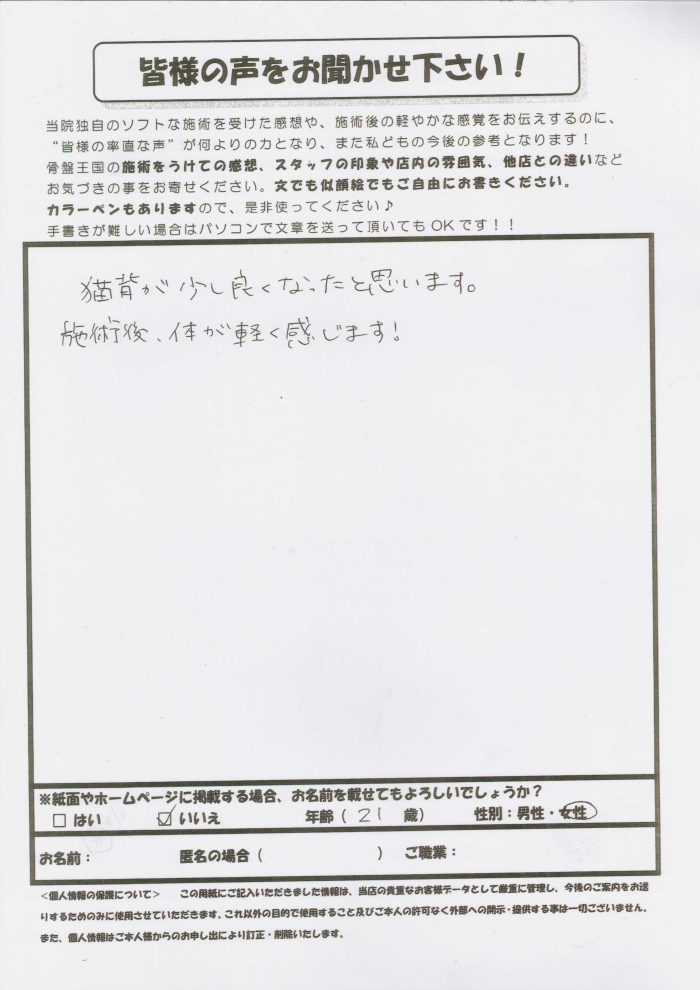 皆様の声をお聞かせ下さい！
当院独自のソフトな施術を受けた感想や、施術後の軽やかな感覚をお伝えするのに、
“皆様の率直な声”が何よりの力となり、また私どもの今後の参考となります！
骨盤王国の施術をうけての感想、スタッフの印象や店内の雰囲気、他店との違いなど
お気づきの事をお寄せください。文でも似顔絵でもご自由にお書きください。
カラーペンもありますので、是非使ってください♪
手書きが難しい場合はパソコンで文章を送って頂いてもOKです！！
猫背が少し良くなったと思います。
施術後、体が軽く感じます!
※紙面やホームページに掲載する場合、お名前を載せてもよろしいでしょうか？
□ はい ☑ いいえ 年齢（ 21 歳） 性別：男性・女性
お名前： 匿名の場合（ ） ご職業：
＜個人情報の保護について＞ この用紙にご記入いただきました情報は、当店の貴重なお客様データとして厳重に管理し、今後のご案内をお送
りするためのみに使用させていただきます。これ以外の目的で使用すること及びご本人の許可なく外部への開示・提供する事は一切ございません。
また、個人情報はご本人様からのお申し出により訂正・削除いたします。